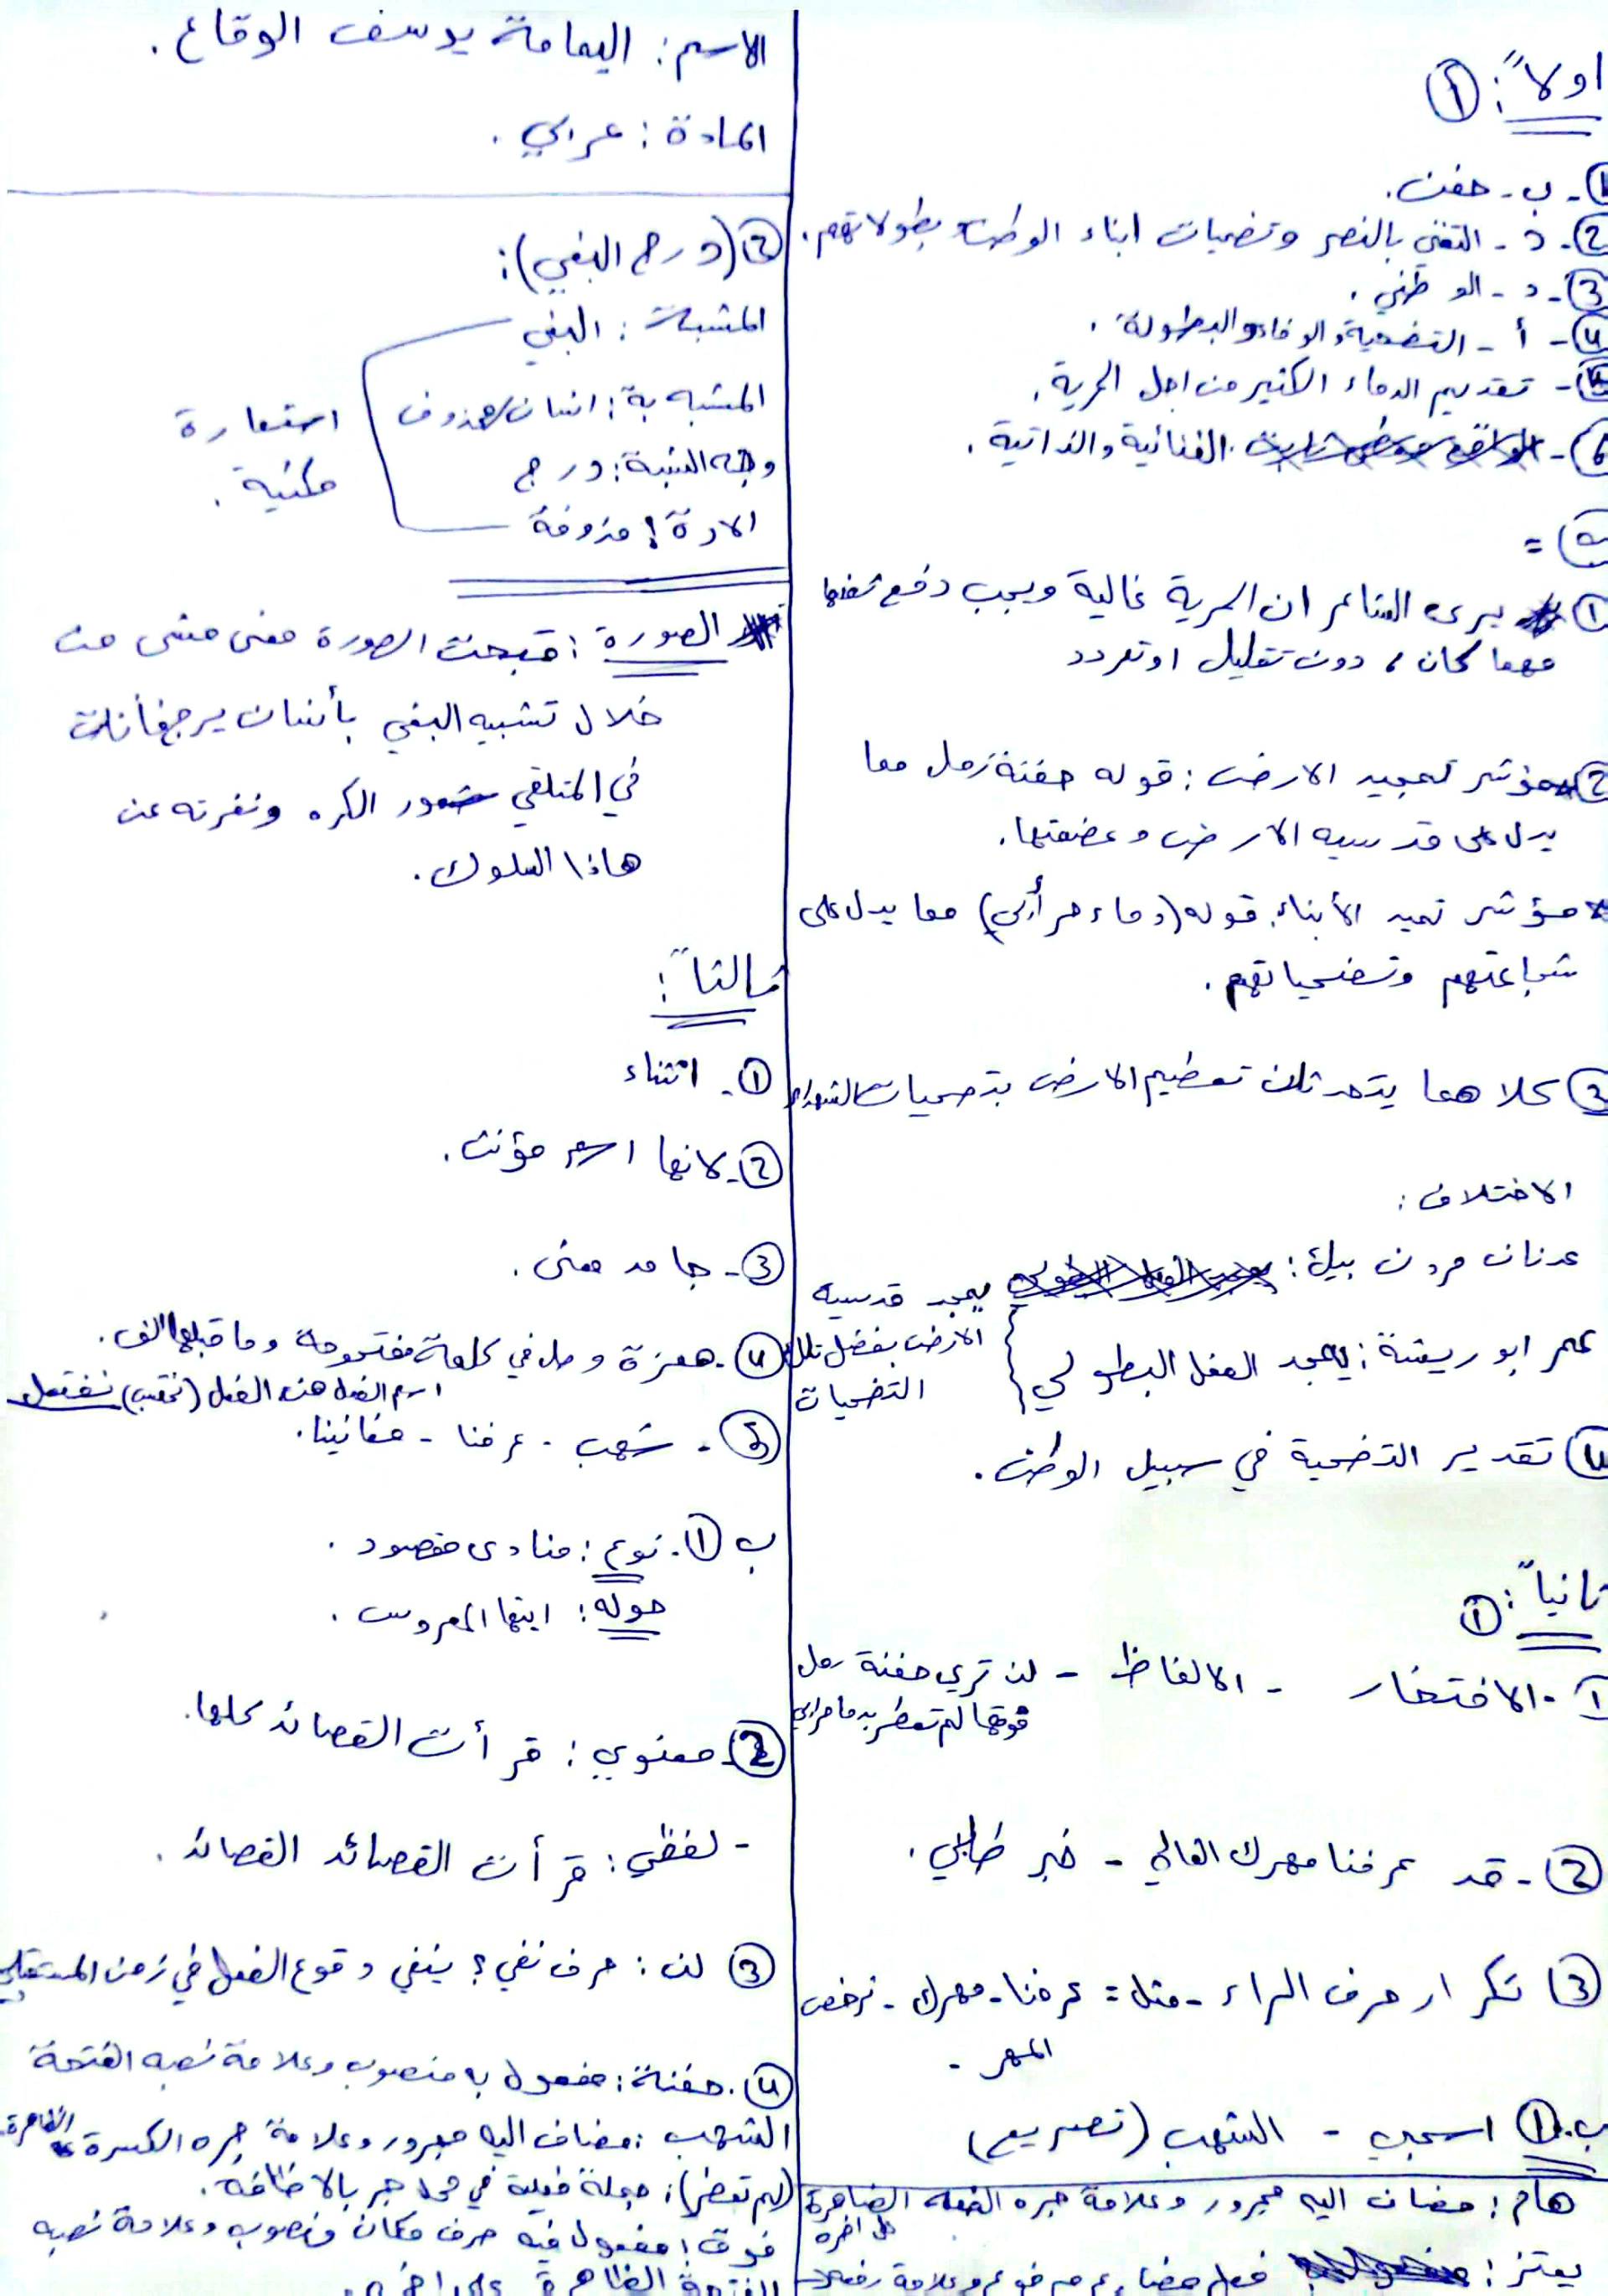 اولاً: ①
① - ب - حفن.
② - د - التغني بالنصر وتضحيات ابناء الوطن وبطولاتهم.
③ - د - الوطني.
④ - أ - التضحية والوفاء والبطولة.
- تقديم الدماء الكثير من اجل الحرية.
⑥ - الغنائية والذاتية.
=
① يرى الشاعر ان الحرية غالية ويجب دفع ثمنها
مهما كان، دون تقليل او تردد
② مؤشر تمجيد الارض: قوله حفنة رمل مما
يدل على قدسيه الارض وعضمتها.
مؤشر تمجيد الأبناء: قوله (دماء حر أبي) مما يدل على
شجاعتهم وتضحياتهم.
③ كلاهما يتحدثان تعظيم الارض بتضحيات الشهداء
الاختلاف:
عدنان مردم بيك: يمجد قدسيه
الارض بفضل تلك
التضحيات
عمر ابو ريشة: يمجد الفعل البطولي
④ تقدير التضحية في سبيل الوطن.
ثانياً: ①
① - الافتخار - الالفاظ - لن تري حفنة رمل
فوقها لم تعطر بدما حر ابي
② - قد عرفنا مهرك الغالي - خبر طلبي.
③ تكرار حرف الراء - مثل = عرفنا - مهرك - نرخص
المهر -
ب. ① اسحبي - الشهب (تصريع)
هام: مضاف اليه مجرور وعلامة جره الضاهرة
على اخره
يعتز: فعل مضارع مرفوع وعلامة رفعه
الاسم: اليمامة يوسف الوقاع.
المادة: عربي.
② (درج البغي):
المشبة: البغي
المشبه بة: انسان/محذوف
وجه الشبة: درج
الادة: محذوفة
استعارة
مكنية.
الصورة: قبحت الصورة معنى من
خلال تشبيه البغي بأنسان يرج فأثارت
في المتلقي شعور الكره ونفرته عن
هاذا السلوك.
ثالثاً:
① - اثناء
② - لانها اسم مؤنث.
③ - جامد معنى.
④ - همزة وصل في كلمة مفتوحة وما قبلها الف.
⑤ - شهب - عرفنا - مغانينا.
ب ① - نوع: منادى مقصود.
حوله: ايتها العروس.
② - معنوي: قرأت القصائد كلها.
- لفظي: قرأت القصائد القصائد.
③ لن: حرف نفي؟ ينفي وقوع الفعل في زمن المستقبل
④ - حفنة: مفعول به منصوب وعلامة نصبه الفتحة
الشهب: مضاف اليه مجرور وعلامة جره الكسرة الظاهرة
(لم تعطر): جملة فعلية في محل جر بالاضافه.
فوق: مفعول فيه ضرف مكان منصوب وعلامة نصبه
الفتحة الظاهرة على اخره.